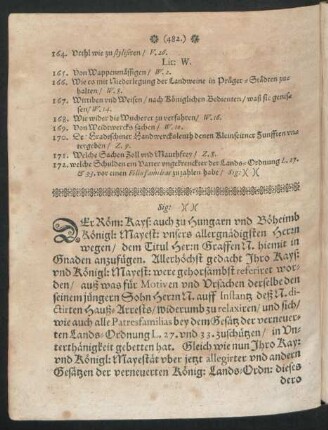 (482.)
164. Urthl wie zu styliseren / V. 26.
Lit: W.
165. Von Wappenmässigen / W. 2.
166. Wie es mit Niederlegung der Landweine in Prager-Städten zu-
halten / W. 5.
167. Wittiben und Weisen / nach Königlichen Bedeuten / waß sie genies-
sen / W. 14.
168. Wie wider die Wucherer zu verfahren / W. 18.
169. Von Weidewercks sachen / W. 10.
170.
tergeben / Z. 9.
171. Welche Sachen Zoll und Mautbfrey / Z. 8.
172. welche Schulden ein Vatter ungehindert der Lands-Ordnung L. 27.
& 33. vor einen Filiumfamilias zuzahlen habe / Sig: )( )(
Sig: )( )(
DEr Röm: Kays: auch zu Hungarn vnd Böheimb
Königl: Mayest: vnsers allergnädigsten Herrn
wegen / dem Titul Herrn Graffen N. hiemit in
Gnaden anzufügen. Allerhöchst gedacht Ihro Kays:
vnd Königl: Mayest: were gehorsambst referiret wor-
den / auß was für Motiven vnd Ursachen derselbe den
seinem jüngern Sohn Herrn N. auff Instantz deß N. di-
ctirten Hauß-Arrests / widerumb zu relaxiren / und sich /
wie auch alle Patresfamilias bey dem Gesätz der verneuer-
ten Lands-Ordnung L. 27. vnd 33. zuschützen / in Un-
terthänigkeit gebetten hat. Gleich wie nun Ihro Kay:
vnd Königl: Mayestät vber jetzt allegirter vnd andern
Gesätzen der verneuerten König: Lands-Ordn: dieses
dero